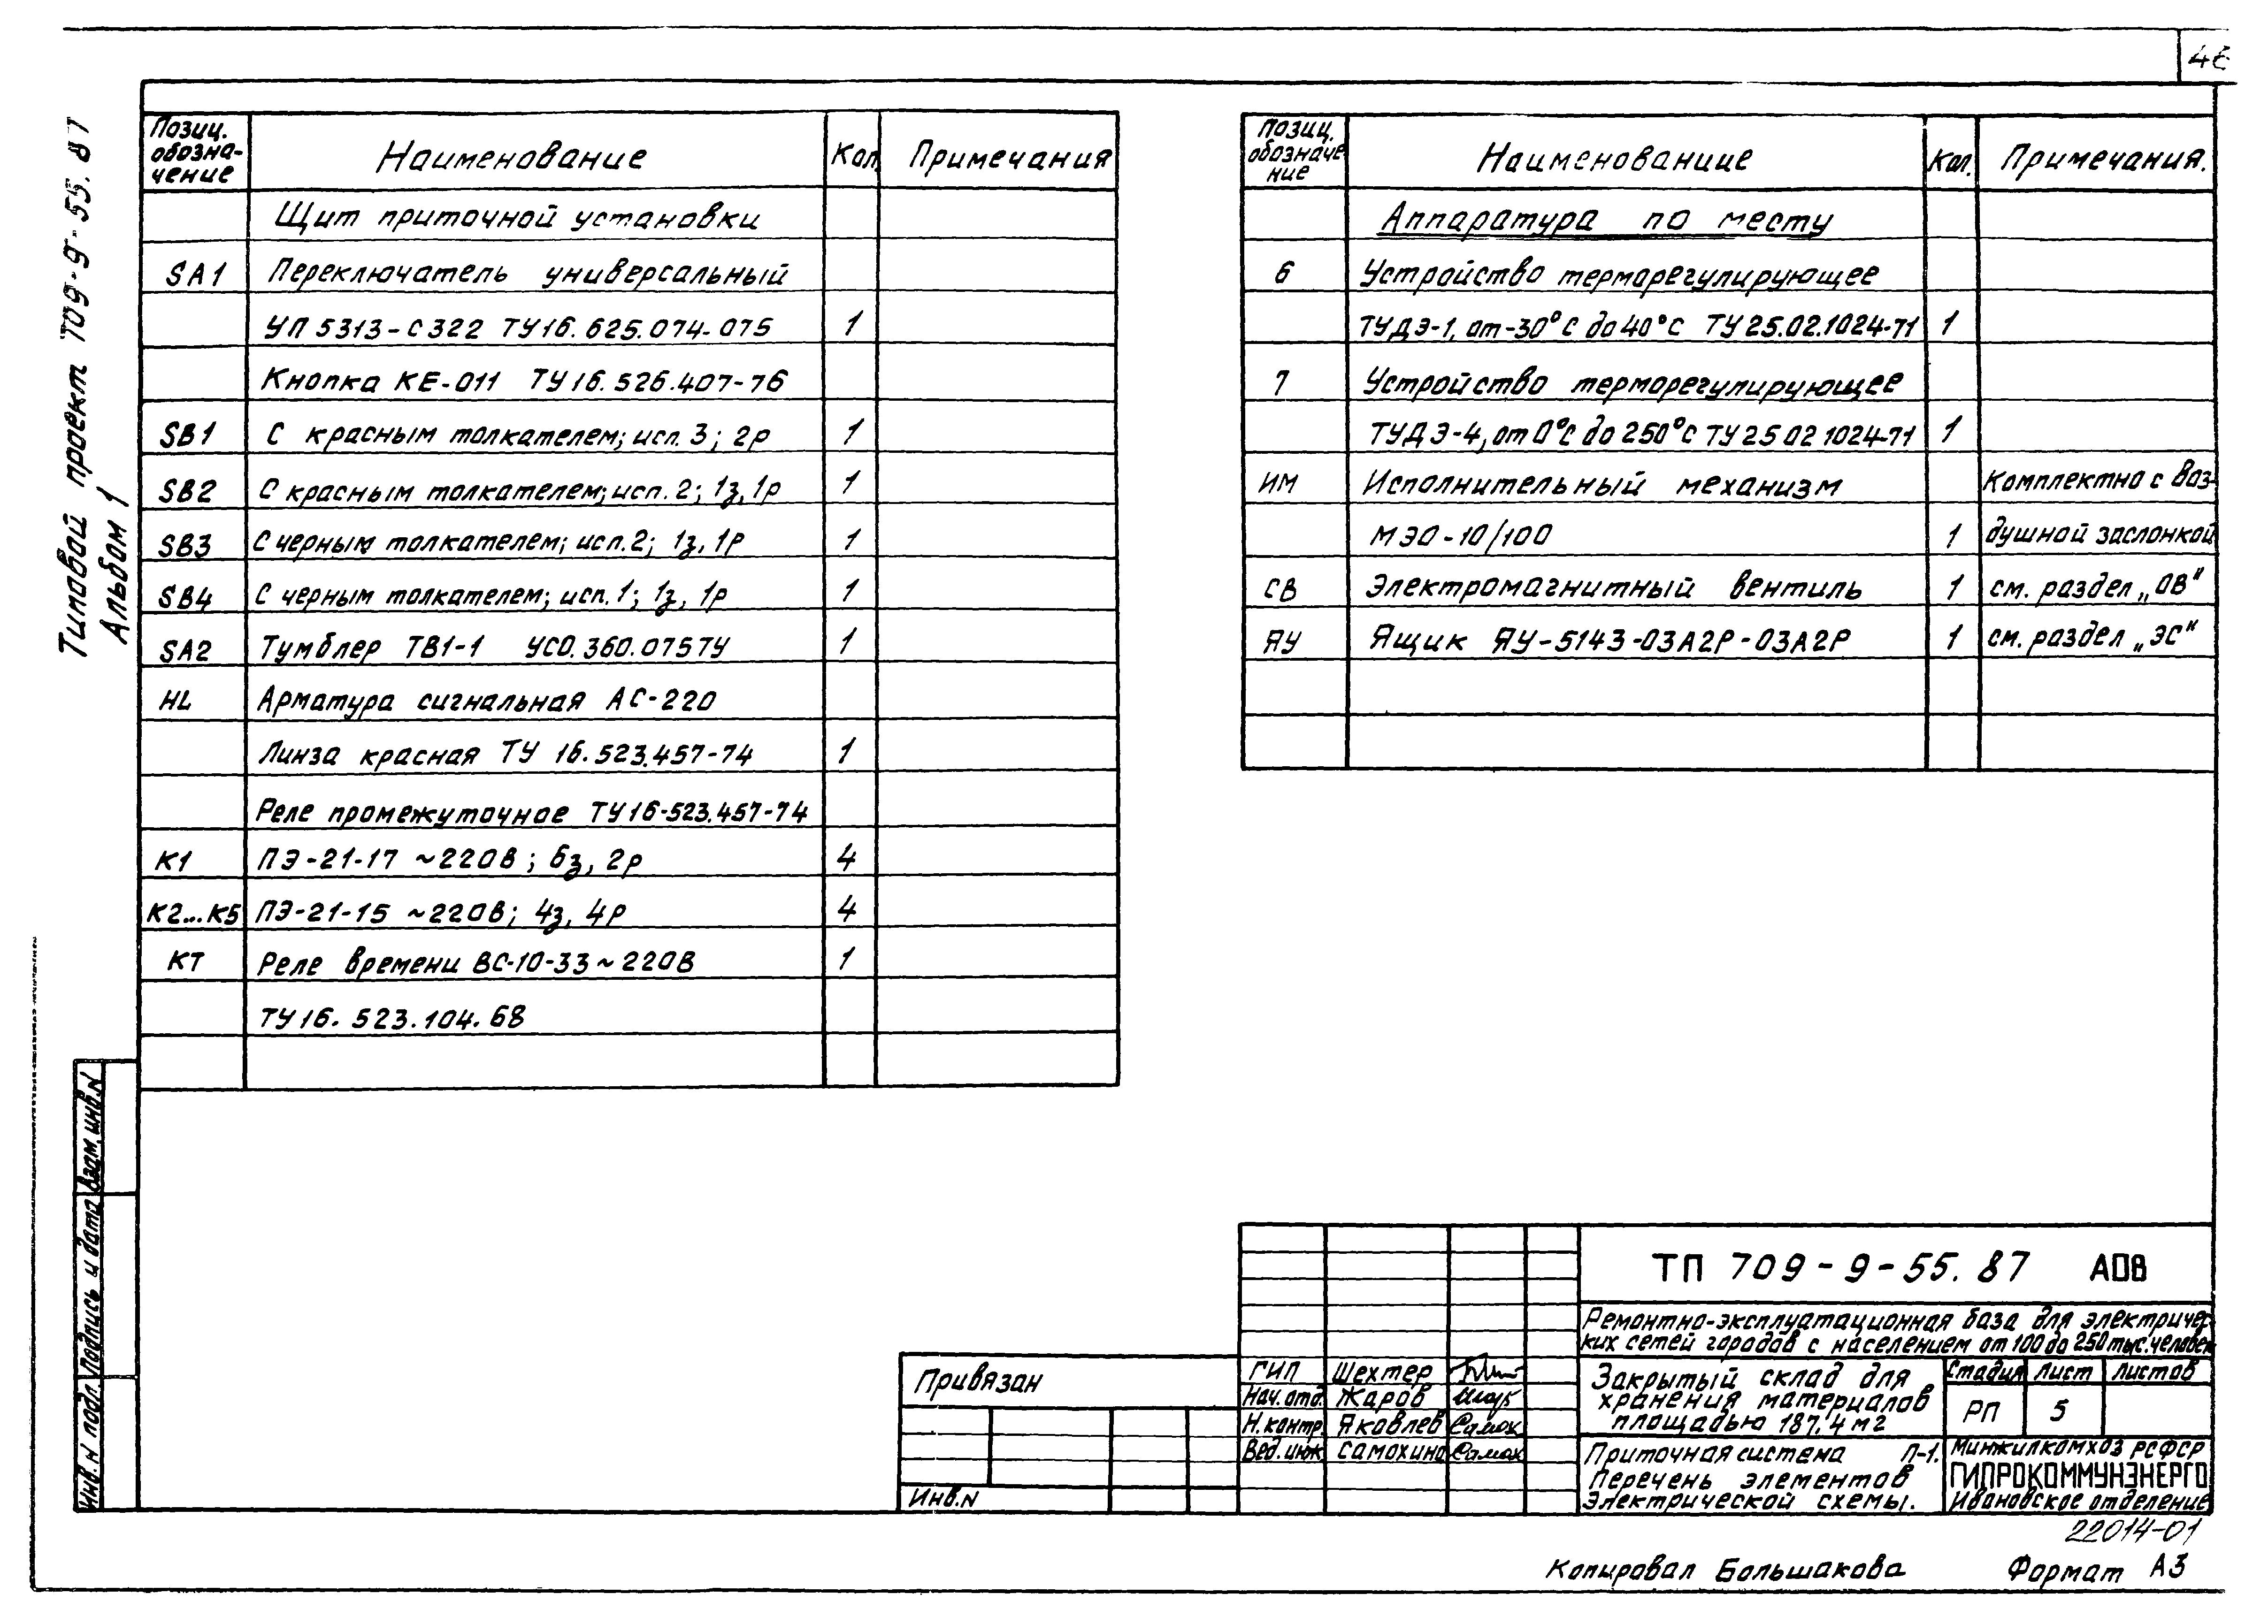 Типовой проект 709-9-55.87
Альбом 1
Позиц. обозна-чение Наименование Кол. Примечания
Щит приточной установки
SA1 Переключатель универсальный
УП 5313-С322 ТУ16.625.074-075 1
Кнопка КЕ-011 ТУ16.526.407-76
SB1 С красным толкателем; исп. 3; 2р 1
SB2 С красным толкателем; исп. 2; 1з, 1р 1
SB3 С черным толкателем; исп. 2; 1з, 1р 1
SB4 С черным толкателем; исп. 1; 1з, 1р 1
SA2 Тумблер ТВ1-1 УСО.360.075ТУ 1
HL Арматура сигнальная АС-220
Линза красная ТУ 16.523.457-74 1
Реле промежуточное ТУ16-523.457-74
К1 ПЭ-21-17 ~220В; 6з, 2р 4
К2...К5 ПЭ-21-15 ~220В; 4з, 4р 4
КТ Реле времени ВС-10-33 ~ 220В 1
ТУ16. 523.104.68
Позиц. обозначе ние Наименованице Кол. Примечания.
Аппаратура по месту
6 Устройство терморегулирующее
ТУДЭ-1, от -30°С до 40°С ТУ25.02.1024-71 1
7 Устройство терморегулирующее
ТУДЭ-4, от 0°С до 250°С ТУ25 02 1024-71 1
ИМ Исполнительный механизм Комплектно с Воз-
МЭО-10/100 1 душной заслонкой
СВ Электромагнитный вентиль 1 см. раздел „ОВ"
ЯУ Ящик ЯУ-5143-03А2Р-03А2Р 1 см. раздел „ЭС"
Взам. инв.N
Подпись и дата
Инв. N подл.
Привязан
Инв.N
ТП 709-9-55.87 АОВ
Ремонтно-эксплуатационная база для электричес-
ких сетей городов с населением от 100 до 250 тыс.человек
ГИП Шехтер
Нач.отд. Жаров
Н.контр. Яковлев
Вед.инж. Самохина
Закрытый склад для
хранения материалов
площадью 187,4 м2
Стадия Лист Листов
РП 5
Приточная система П-1.
Перечень элементов
электрической схемы.
Минжилкомхоз РСФСР
ГИПРОКОММУНЭНЕРГО
Ивановское отделение
22014-01
Копировал Большакова Формат А3